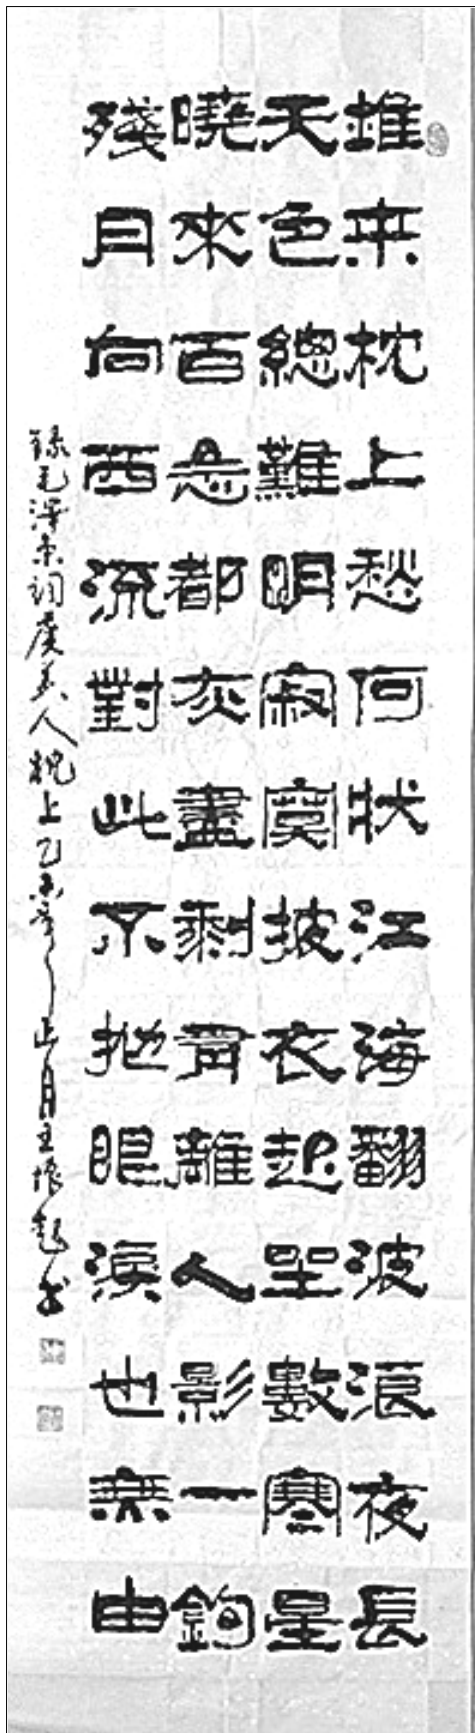 堆来枕上愁何状江海翻波浪夜長
天色總難明寂寞披衣起坐數寒星
曉來百念都灰盡剩有離人影一鈎
殘月向西流對此不抛眼淚也無由
録毛澤東詞虞美人枕上乙未年正月王振起书